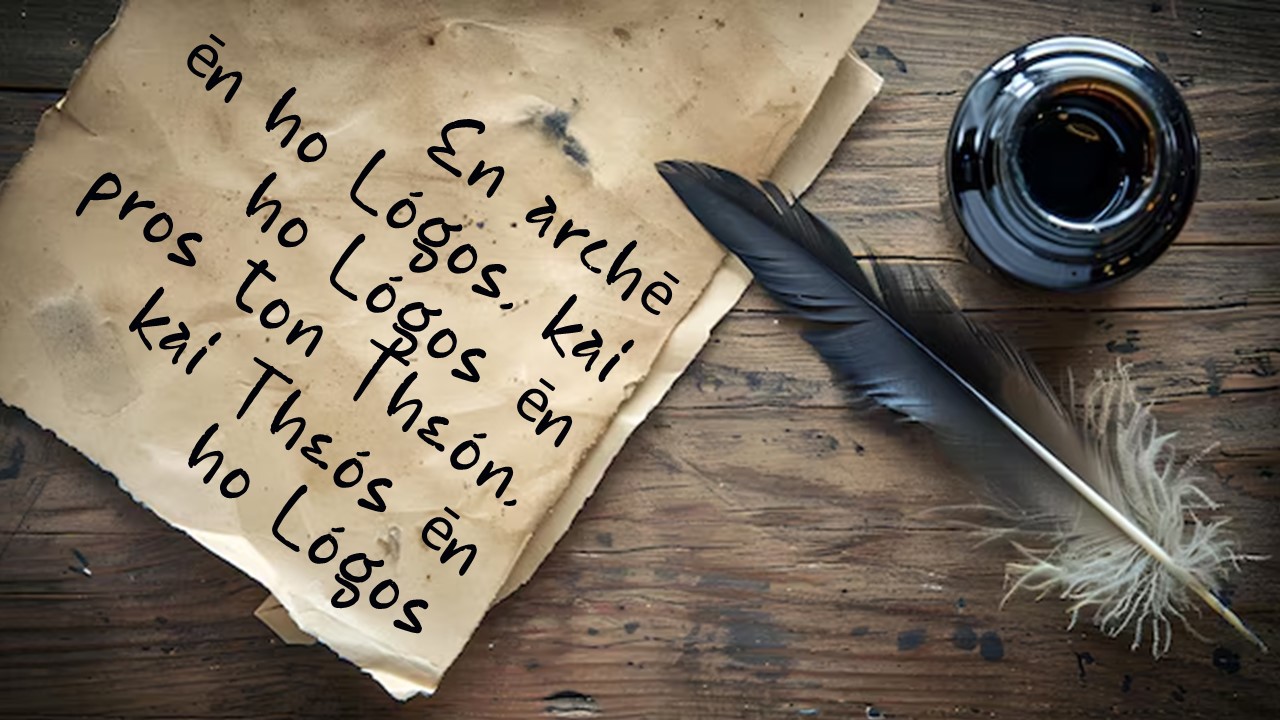 En archē
ēn ho Lógos, kai
ho Lógos ēn
pros ton Theón,
kai Theós ēn
ho Lógos